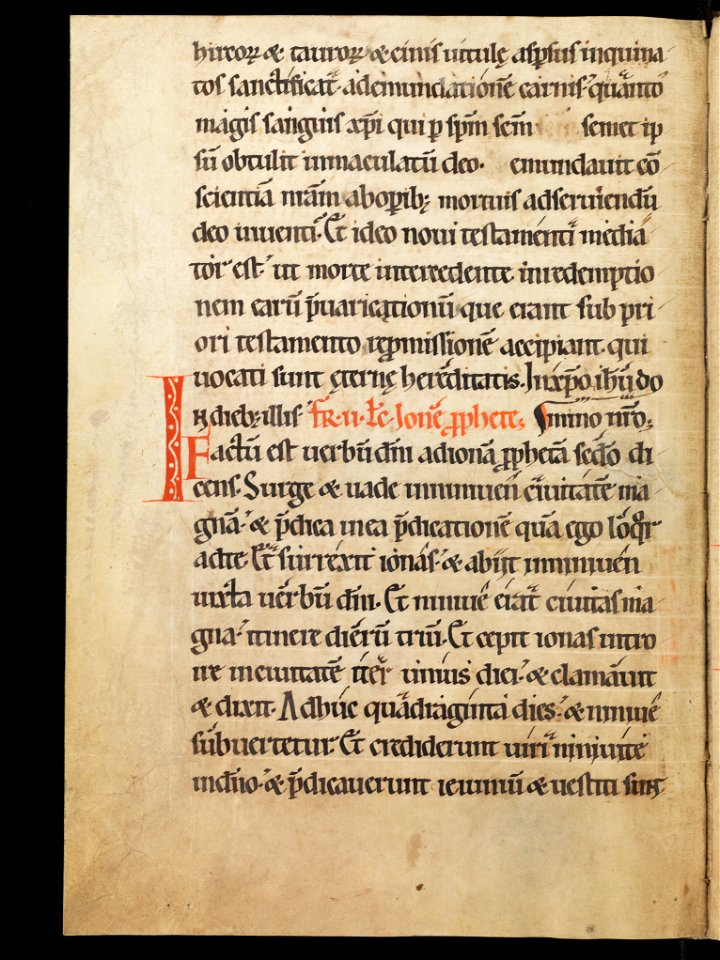 hircoꝝ & tauroꝝ & cinis uitulę aspsus inquina
tos sanctificat̄ · ad emundationē carnis · quanto
magis sanguis xp̄i qui ꝑ sp̄m sc̄m semet ip
sū obtulit inmaculatū deo · emundauit cō
scientiā nr̄am ab opib; mortuis ad seruiendū
deo uiuenti · Et ideo noui testamenti media
tor est · ut morte intercedente · in redemptio
nem earū p̄uaricationū que erant sub pri
ori testamento repmissionē accipiant · qui
uocati sunt ęternę hereditatis · In xp̄o ihū dn̄o
In dieb; illis fr · ii · lc̄ · Ionę ꝓphete; nr̄o;
Factū est uerbū dn̄i ad ionā ꝓphetā sc̄do di
cens · Surge & uade in niniuen ciuitatē ma
gnā · & p̄dica in ea p̄dicationē quā ego loq̄r
ad te · Et surrexit ionas · & abijt in niniuen
iuxta uerbū dn̄i · Et niniuē erat ciuitas ma
gna · itinere dierū triū · Et cepit ionas intro
ire in ciuitatē iter unius diei · & clamauit
& dixit · Adhuc quadraginta dies · & niniuē
subuertetur · Et crediderunt uiri niniuite
in dn̄o · & p̄dicauerunt ieiuniū & uestiti sunt